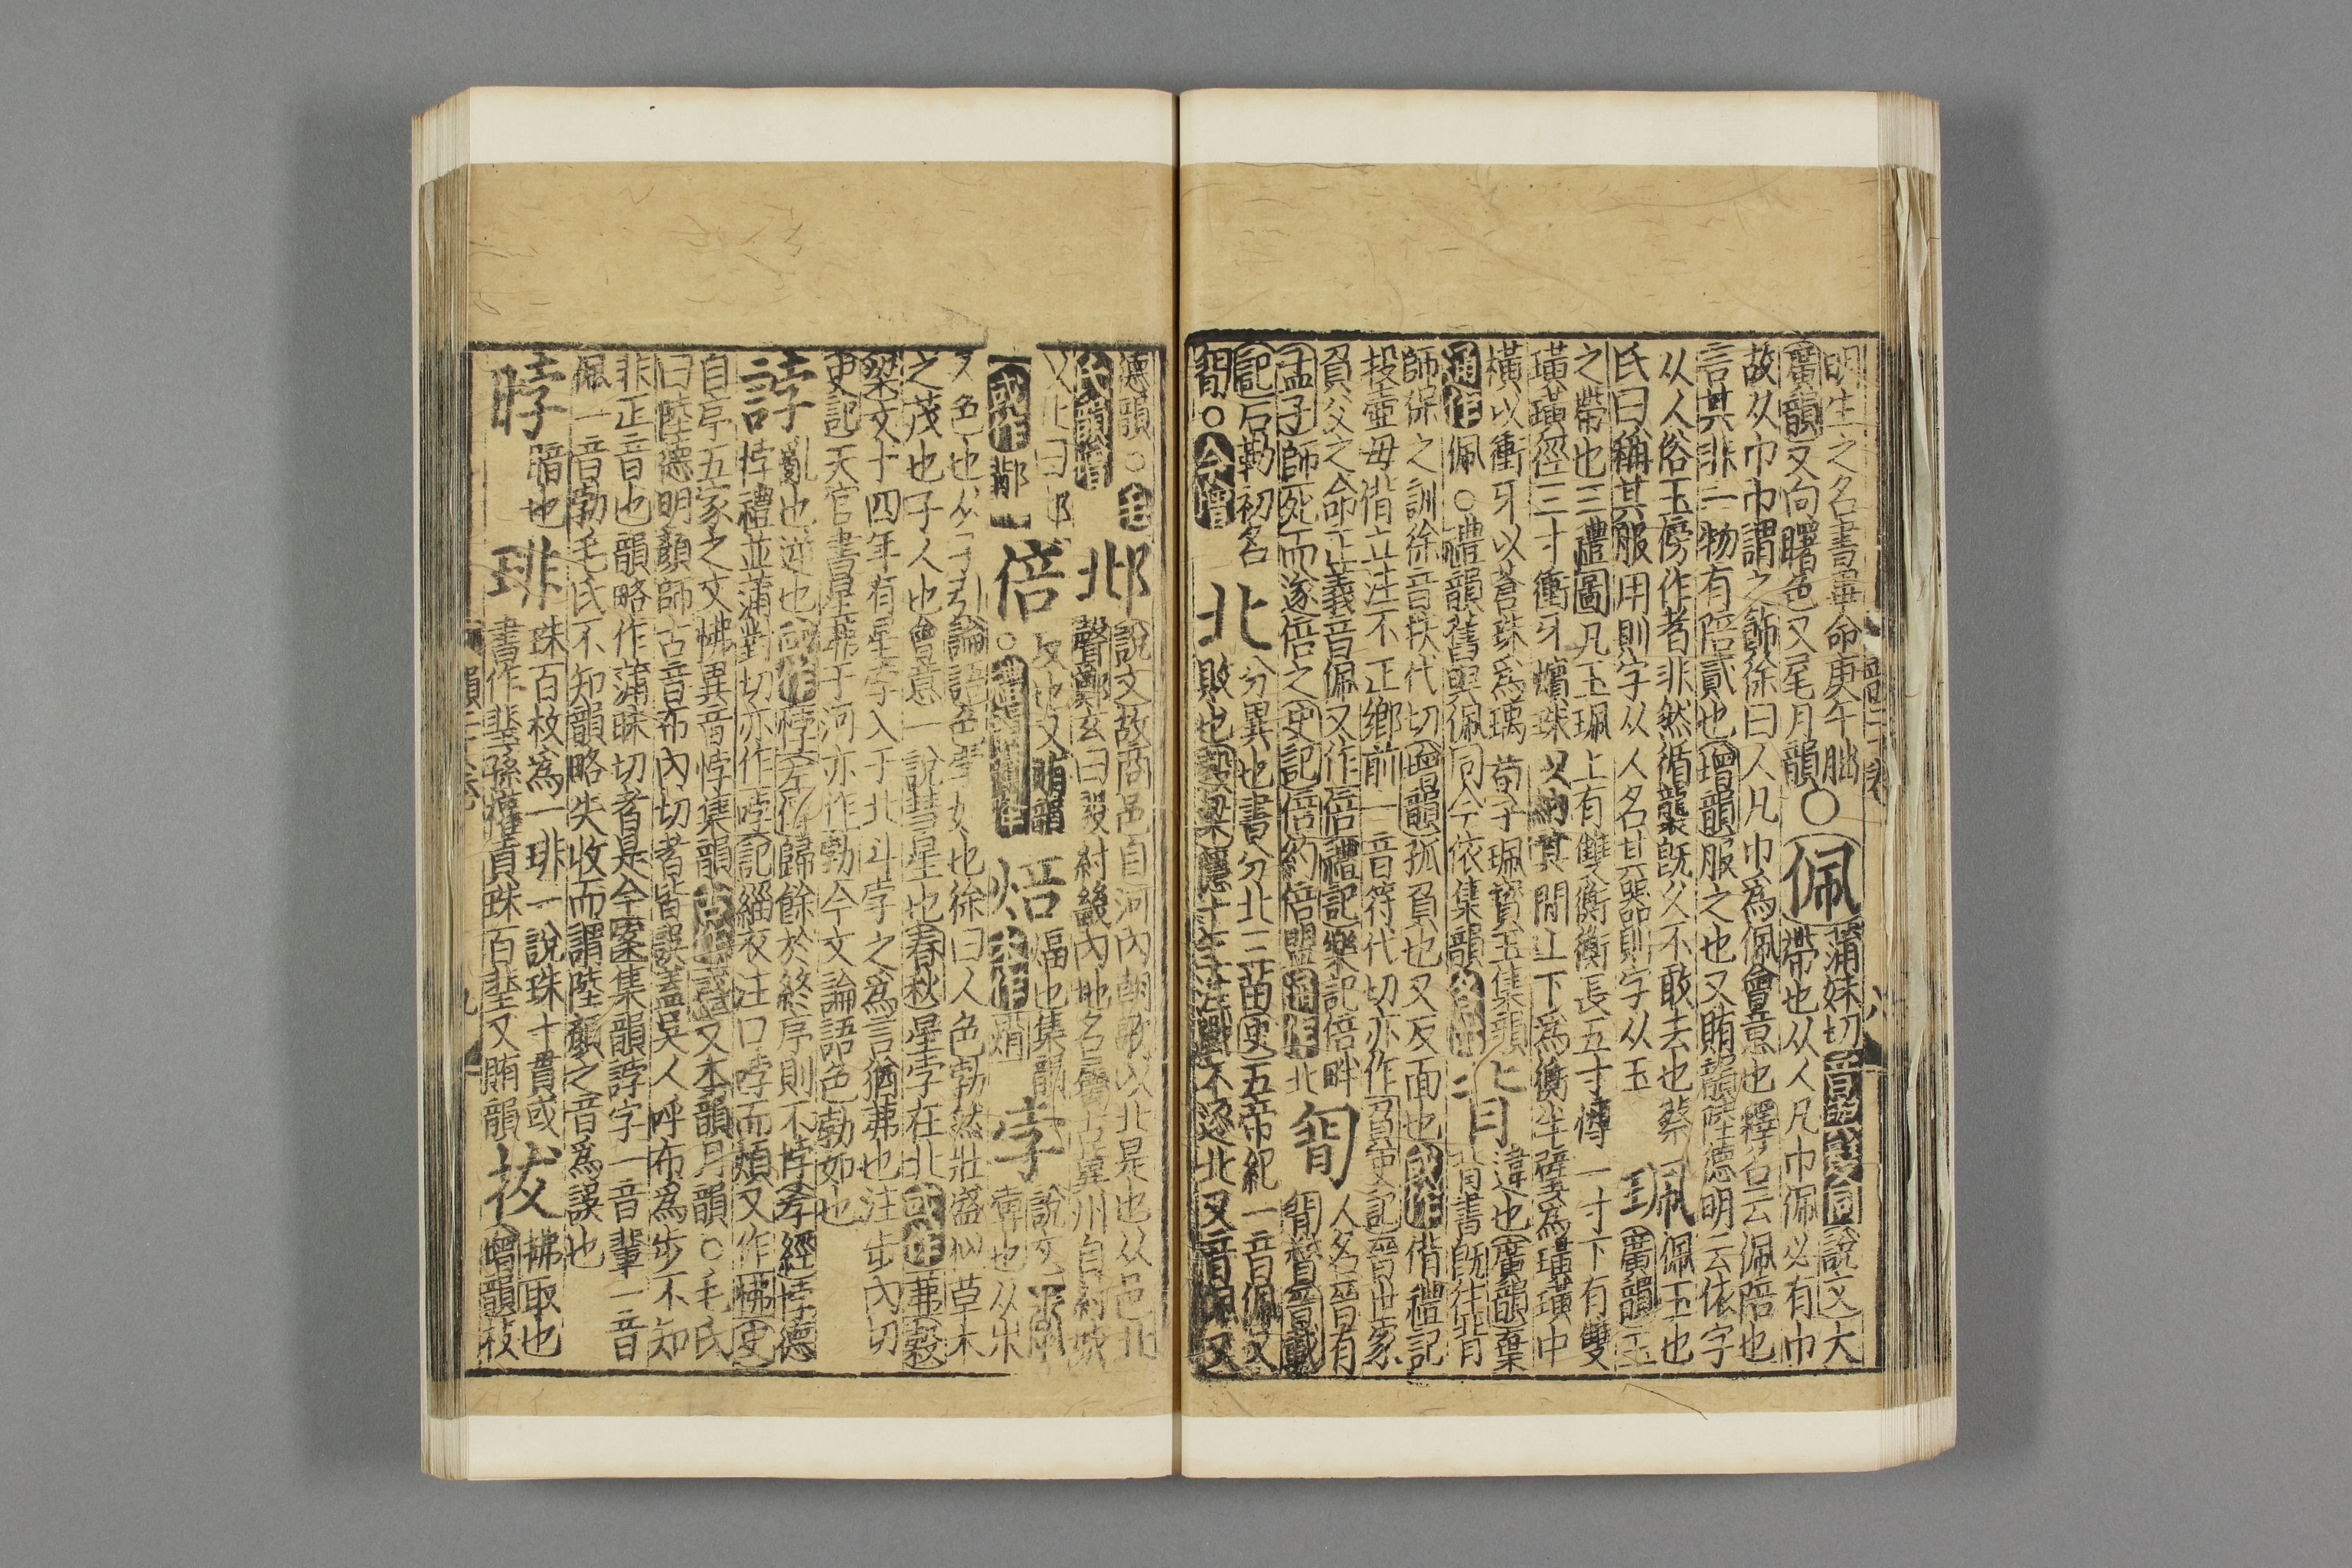 明生之名書畢命庚午朏
廣韻又向曙色又尾月韻○佩蒲妹切音與旁同說文大
帶也从人凡巾佩必有巾
故从巾巾謂之飾徐曰人凡巾爲佩會意也釋名云佩陪也
言其非一物有陪貳也增韻服之也又賄韻陸德明云依字
从人俗玉傍作者非然循襲旣久不敢去也蔡
氏曰稱其服用則字从人名其器則字从玉珮佩玉也
廣韻玉
之帶也三禮圖凡玉珮上有雙衡衡長五寸慱一寸下有雙
璜璜徑三寸衝牙蠙珠以納其閒上下爲衡半璧爲璜璜中
橫以衝牙以蒼珠爲瑀荀子珮寶玉集韻
通作佩○禮韻舊與佩同今依集韻背違也廣韻棄
背書旣往背
師保之訓徐音扶代切增韻孤負也又反面也或作偝禮記
投壷毋偝立注不正鄉前一音符代切亦作負史記齊世家
負父之命正義音佩又作倍禮記樂記倍畔
孟子師死而遂倍之史記倍約倍盟通作北㔨人名晉有
㔨督晉載
記石勒初名
㔨○今增北分異也書分北三苗史五帝紀一音佩又
敗也穀梁隱十年注戰不逐北又音佩又
德韻○毛
氏韻增邶說文故商邑自河內朝歌以北是也从邑北
聲鄭玄曰殷紂畿內地名屬古兾州自紂城
以北曰邶
或作鄁倍反也又賄韻
○焙煏也集韻
或作㷶孛說文
㚄也从𣎵
又色也从子引論語色孛如也徐曰人色勃然壯盛似草木
之茂也子人也會意一說彗星也春秋星孛在北或作茀穀
梁文十四年有星孛入于北斗孛之爲言猶茀也注步內切
史記天官書星茀于河亦作勃今文論語色勃如也
誖亂也逆也或作悖左傳歸餘於終序則不悖孝經悖德
悖禮並蒲對切亦作哱記緇衣注口哱而煩又作怫史
自序五家之文怫異音悖集韻又本韻月韻○毛氏
曰陸德明顏師古音布內切者皆誤蓋吳人呼布爲步不知
非正音也韻略作蒲昧切者是今案集韻誖字一音輩一音
佩一音勃毛氏不知韻略失收而謂陸顏之音爲誤也
㫲暗也琲珠百枚爲一琲一說珠十貫或
書作𧊧孫愐貢珠百琲又賄韻拔拂取也
增韻枝